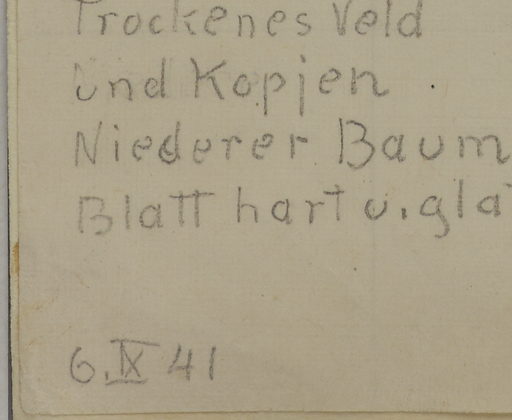 Trockenes Veld
und Kopjen
Niederer Baum
Blatt hart u. gla
6. IX 41